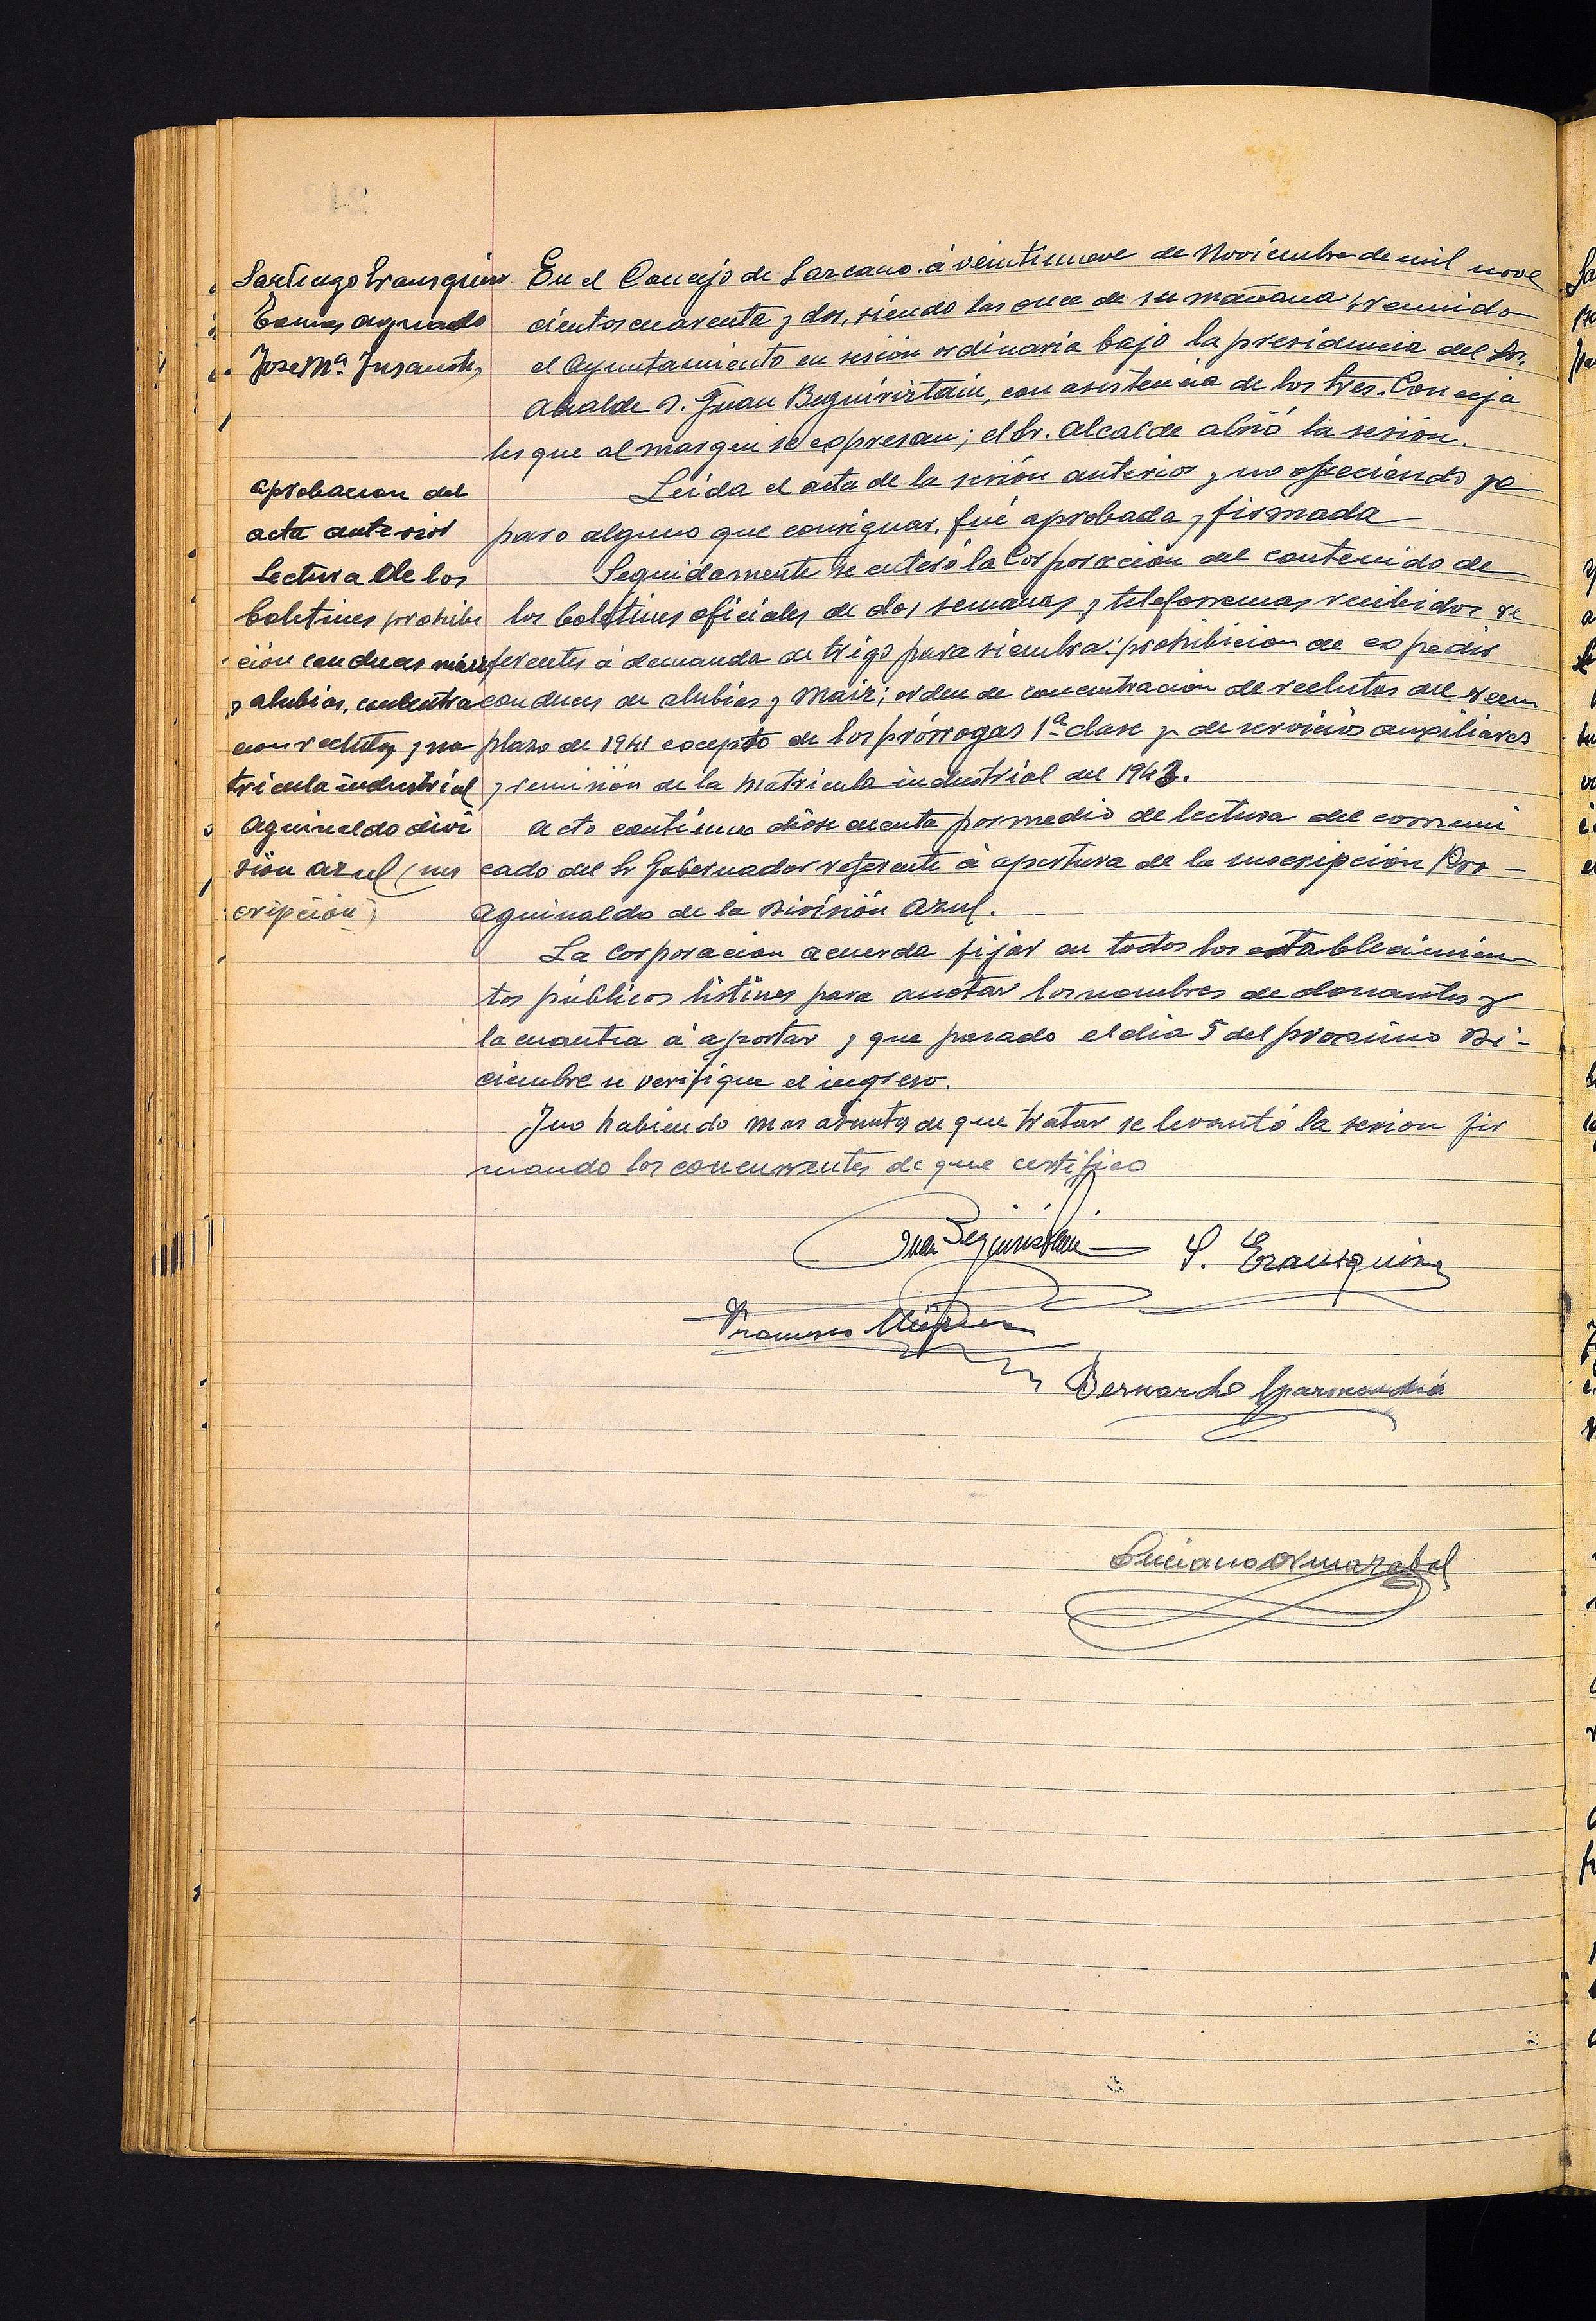 Santiago Erausquin
Tomas Aguado
Jose Mª Insausti
En el Concejo de Lazcano á veintinueve de Noviembre de mil nove
cientos cuarenta y dos, siendo las once de su mañana, reunido
el Ayuntamiento en sesión ordinaria bajo la presidencia del Sr.
Alcalde D. Juan Beguiristain, con asistencia de los Sres. Conceja
les que al margen se expresan; el Sr. Alcalde abrió la sesión.
Aprobacion del
acta anterior
Leida el acta de la sesión anterior y no ofreciendo re
paro alguno que consignar, fué aprobada y firmada
Lectura de los
boletines prohibi
ción conduces maiz
y alubias, concentra
cion reclutas y ma
tricula industrial
Seguidamente se enteró la Corporación del contenido de
los boletines oficiales de dos semanas y telefonemas recibidos re
ferentes á demanda de trigo para siembra: prohibicion de expedir
conduces de alubias y Maiz; orden de concentracion de reclutas del reem
plazo de 1941 excepto de los prórrogas 1ª clase y de servicios auxiliares
y remisión de la Matricula industrial del 1943.
Aguinaldo divi
sión azul (sus
cripción)
Acto continuo dióse cuenta por medio de lectura del comuni
cado del Sr Gobernador referente á apertura de la suscripción Pro-
Aguinaldo de la División Azul.
La Corporacion acuerda fijar en todos los establecimien
tos públicos listines para anotar los nombres de donantes y
la cuantia á aportar y que pasado el dia 5 del proximo Di-
ciembre se verifique el ingreso.
Y no habiendo mas asuntos de que tratar se levantó la sesion fir
mando los concurrentes de que certifico
Juan Beguiristain
S. Erausquin
Francisco
Bernardo Garmendia
Luciano